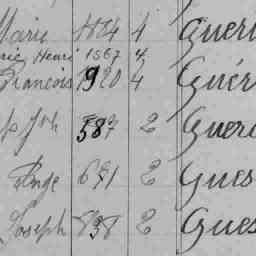 Marie 1884 4 Gueri
rie Henri 1567 4
François 1920 4 Guér
Jph 587 2 Guer
Ange 671 2 Gues
Joseph 838 2 Gues